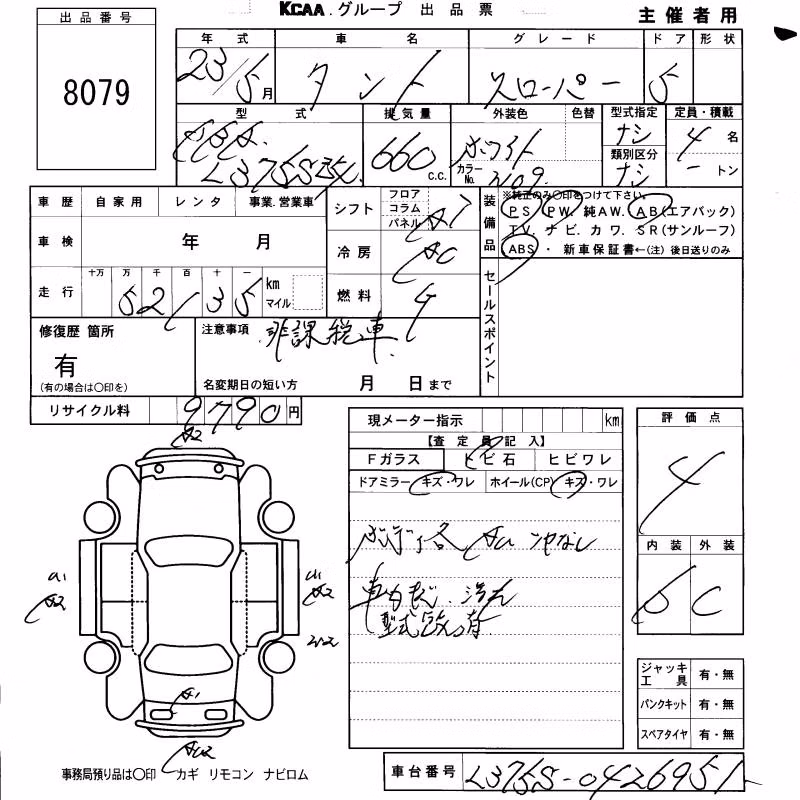 KCAA.グループ 出品票
主催者用
出品番号
8079
年式 車名 グレード ドア 形状
23/5月 タント スローパー 5
型式 排気量 外装色 色替 型式指定 定員・積載
CBA- 660c.c. ホワイト ナシ 4名
L375S改 カラーNo. W09 類別区分 ナシ ートン
車歴 自家用 レンタ 事業.営業車
車検 年 月
走行 十万 万 千 百 十 一 km マイル
52135
シフト フロア コラム パネル AT
冷房 AC
燃料 G
装備品
※純正のみ〇印をつけて下さい。
PS. PW. 純AW. AB(エアバック)
TV. ナビ. カワ. SR(サンルーフ)
ABS・新車保証書←(注) 後日送りのみ
セールスポイント
修復歴 箇所
有
(有の場合は〇印を)
注意事項 非課税車
名変期日の短い方 月 日まで
リサイクル料 9790円
現メーター指示 km
【査定員記入】
Fガラス ヒビ石 ヒビワレ
ドアミラー キズ・ワレ ホイール(CP) キズ・ワレ
ボディ各
評価点
4
内装 外装
C
A2
A1
A2
A1
A2
A1
ジャッキ工具 有・無
パンクキット 有・無
スペアタイヤ 有・無
事務局預り品は〇印 カギ リモコン ナビロム
車台番号 L375S-0426951